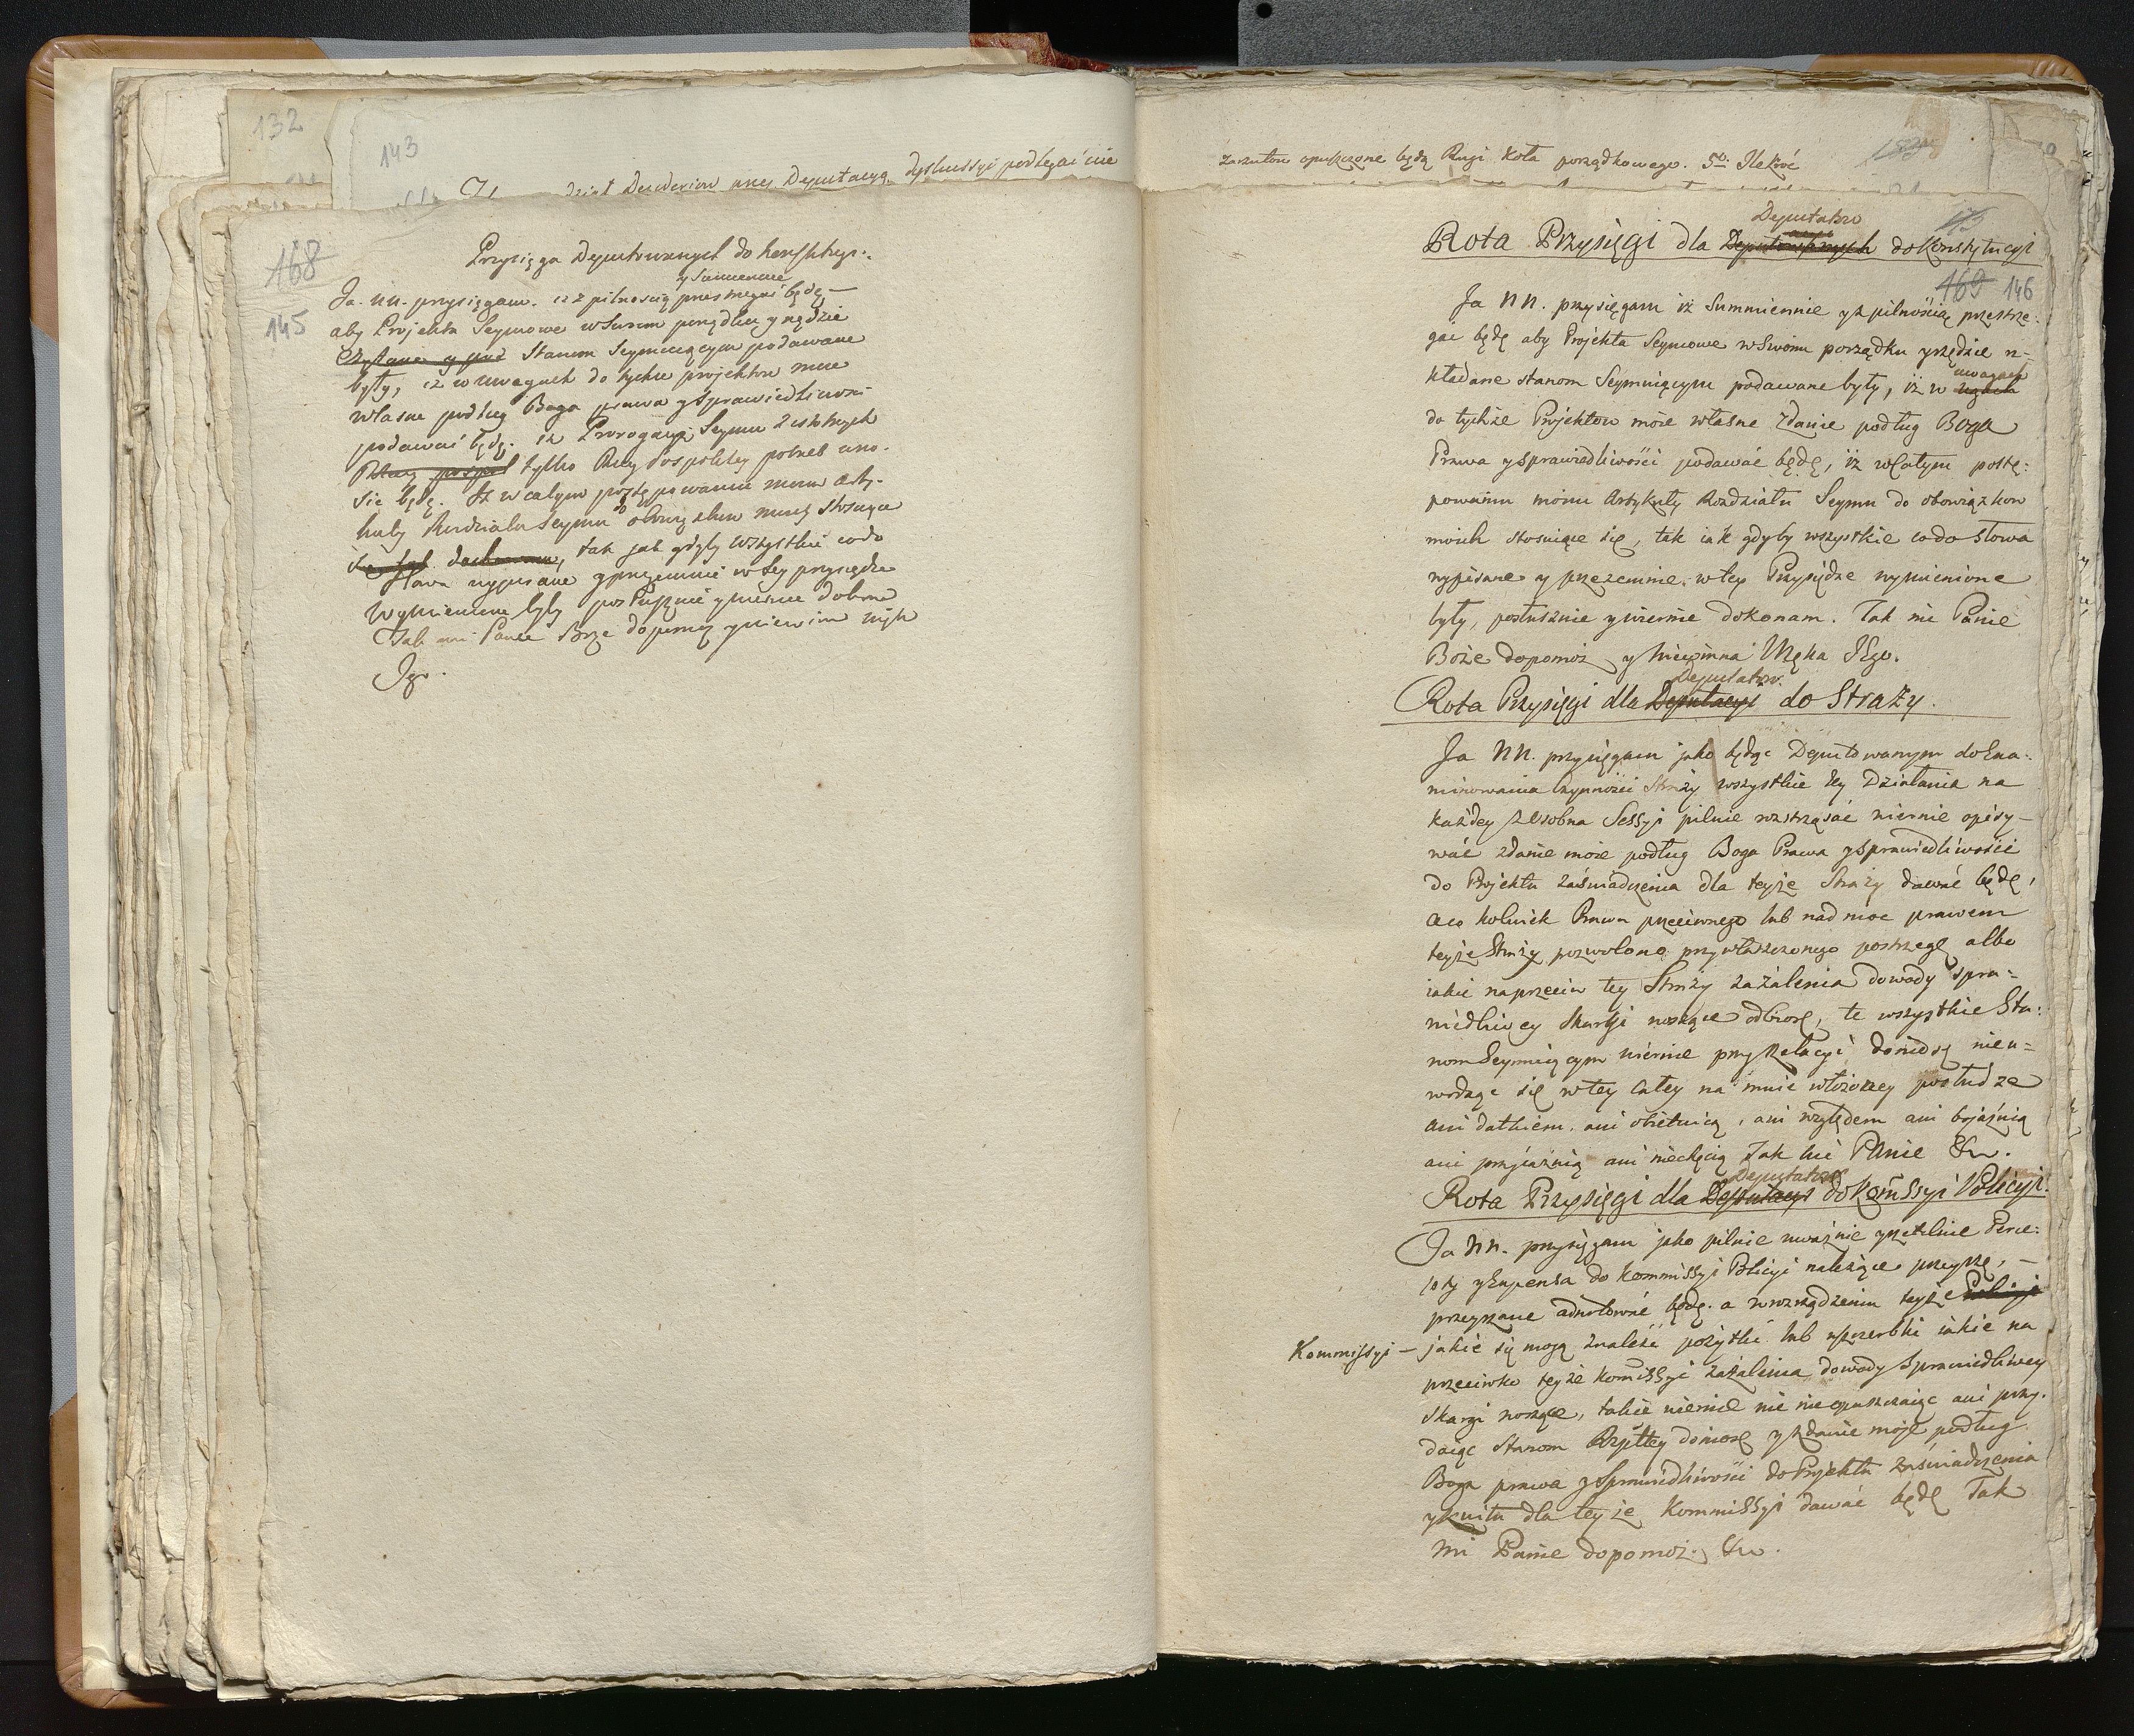 132
143
dział Dezyderiow przez Deputacyą dyskussyi podlegać nie
168
145
Przysięga Deputowanych do konstytuc:
y Sumiennie
Ja NN. przysięgam. iż z pilnością przestrzegać będę —
aby Projekta Seymowe w Swoim porządku y rzędzie
Stanom Seymuiącym podawane
były, iż w uwagach do tychże projektow moie
własne podług Boga prawa y Sprawiedliwości
podawać będę. iż Prorogacyi Seymu z istotnych
tylko Rzeczy Pospolitey potrzeb
się będę. Iż w całym postępowaniu moim Arty-
kuły Rozdziału Seymu do obowiązkow moich stosuiące
się tak, tak jak gdyby wszystkie co do
słowa wypisane y przezemnie w tey przysiędze
wymienione były posłusznie y wiernie dokonam
Tak mi Panie Boże dopomoż y niewinna męka
Jego.
zarzutow opuszczone będą Rugi Koła porządkowego. 5to
Deputatow
Rota Przysięgi dla Deputowanych do Konstytucyi
169 146
Ja NN. przysięgam iż Summiennie y z pilnością przestrze:
gać będę aby Projekta Seymowe w Swoim porządku y rzędzie u=
kładane stanom Seymuiącym podawane były, iż w uwagach
do tychże Projektow moie własne zdanie podług Boga
Prawa y sprawiedliwości podawać będę, iż w całym postę:
powaniu moim Artykuły Rozdziału Seymu do obowiązkow
moich stosuiące się, tak iak gdyby wszystkie co do słowa
wypisane y przezemnie w tey Przysiędze wymienione
były, posłusznie y wiernie dokonam. Tak mi Panie
Boże dopomoż y Niewinna Męka JEgo.
Deputatow.
Rota Przysięgi dla Deputacyi do Straży.
Ja NN. przysięgam jako będąc Deputowanym do Exa-
minowania czynności Straży wszystkie Jey Działania na
każdey z osobna Sessyi pilnie roztrząsać wiernie opisy-
wać zdanie moie podług Boga Prawa y sprawiedliwości
do Projektu zaświadczenia dla teyże Straży dawać będę,
a co kolwiek Prawu przeciwnego lub nad moc prawem
teyże Straży pozwoloną przywłaszczonego postrzegę albo
iakie naprzeciw tey Straży zażalenia dowody spra=
wiedliwey Skargi noszące odbiorę, te wszystkie Sta:
nom Seymuiącym wiernie przy Relacyi doniosę nieu=
wodząc się w tey całey na mnie włożoney posłudze
ani datkiem, ani obietnicą, ani względem ani bojaźnią
ani przyiaźnią ani niechęcią Tak mi Panie &c.
Deputatow
Rota Przysięgi dla Deputacyi do Komissyi Policyi.
Ja NN. przysięgam jako pilnie uważnie y rzetelnie Perce:
pty y Expensa do Kommissyi Policyi należące przeyrzę, —
przeyrzane adnotować będę. a w rozrządzeniu teyże Policyi
Kommissyi — jakie się mogą znaleść pożytki lub uszczerbki iakie na
przeciwko teyże Komissyi zażalenia dowody sprawiedliwey
Skargi noszące, takie wiernie nie nieopuszczaiąc ani przy-
daiąc Stanom Rzpltey doniosę y zdanie moje podług
Boga prawa y Sprawiedliwości do Projektu Zaświadczenia
y kwitu dla teyże Kommissyi dawać będę Tak
mi Panie dopomoż. &c.